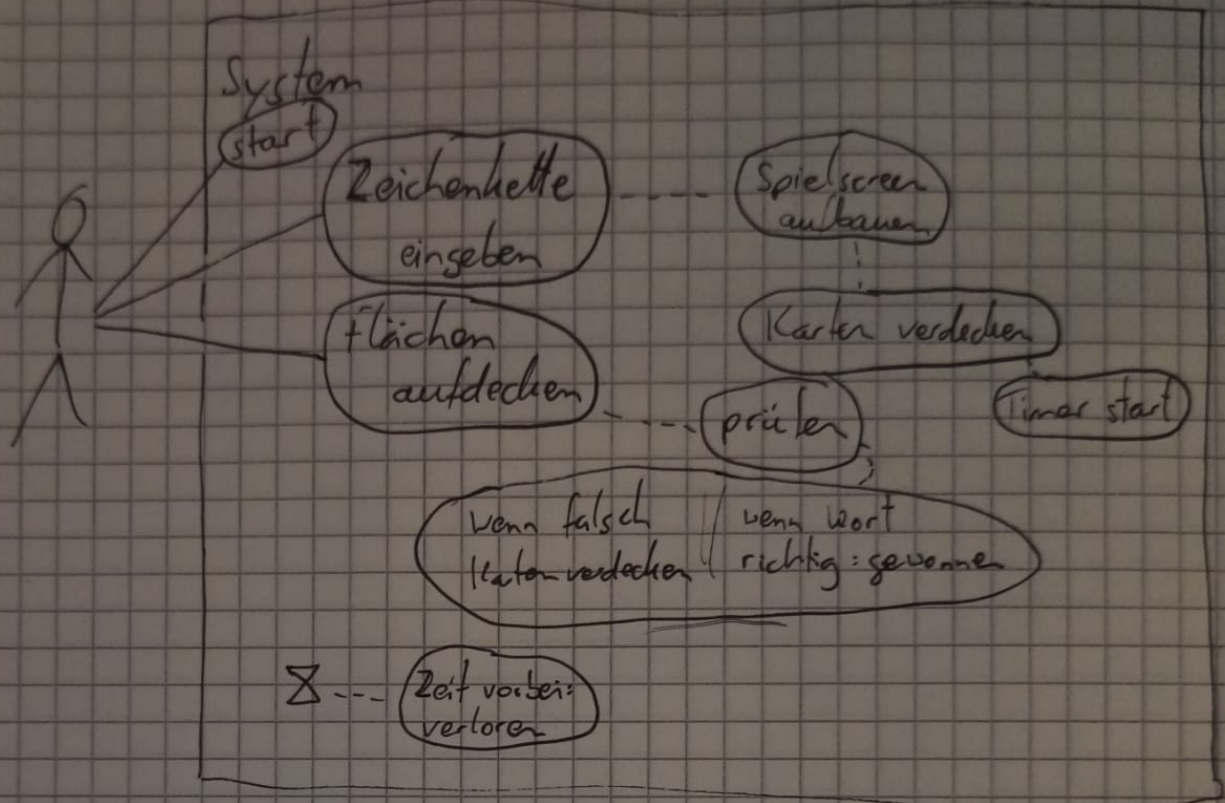 System
start
Zeichenkette
eingeben
Spielscreen
aufbauen
Flächen
aufdecken
Karten verdecken
Timer start
prüfen
wenn falsch
Karten verdecken
wenn Wort
richtig: gewonnen
Zeit vorbei:
verloren